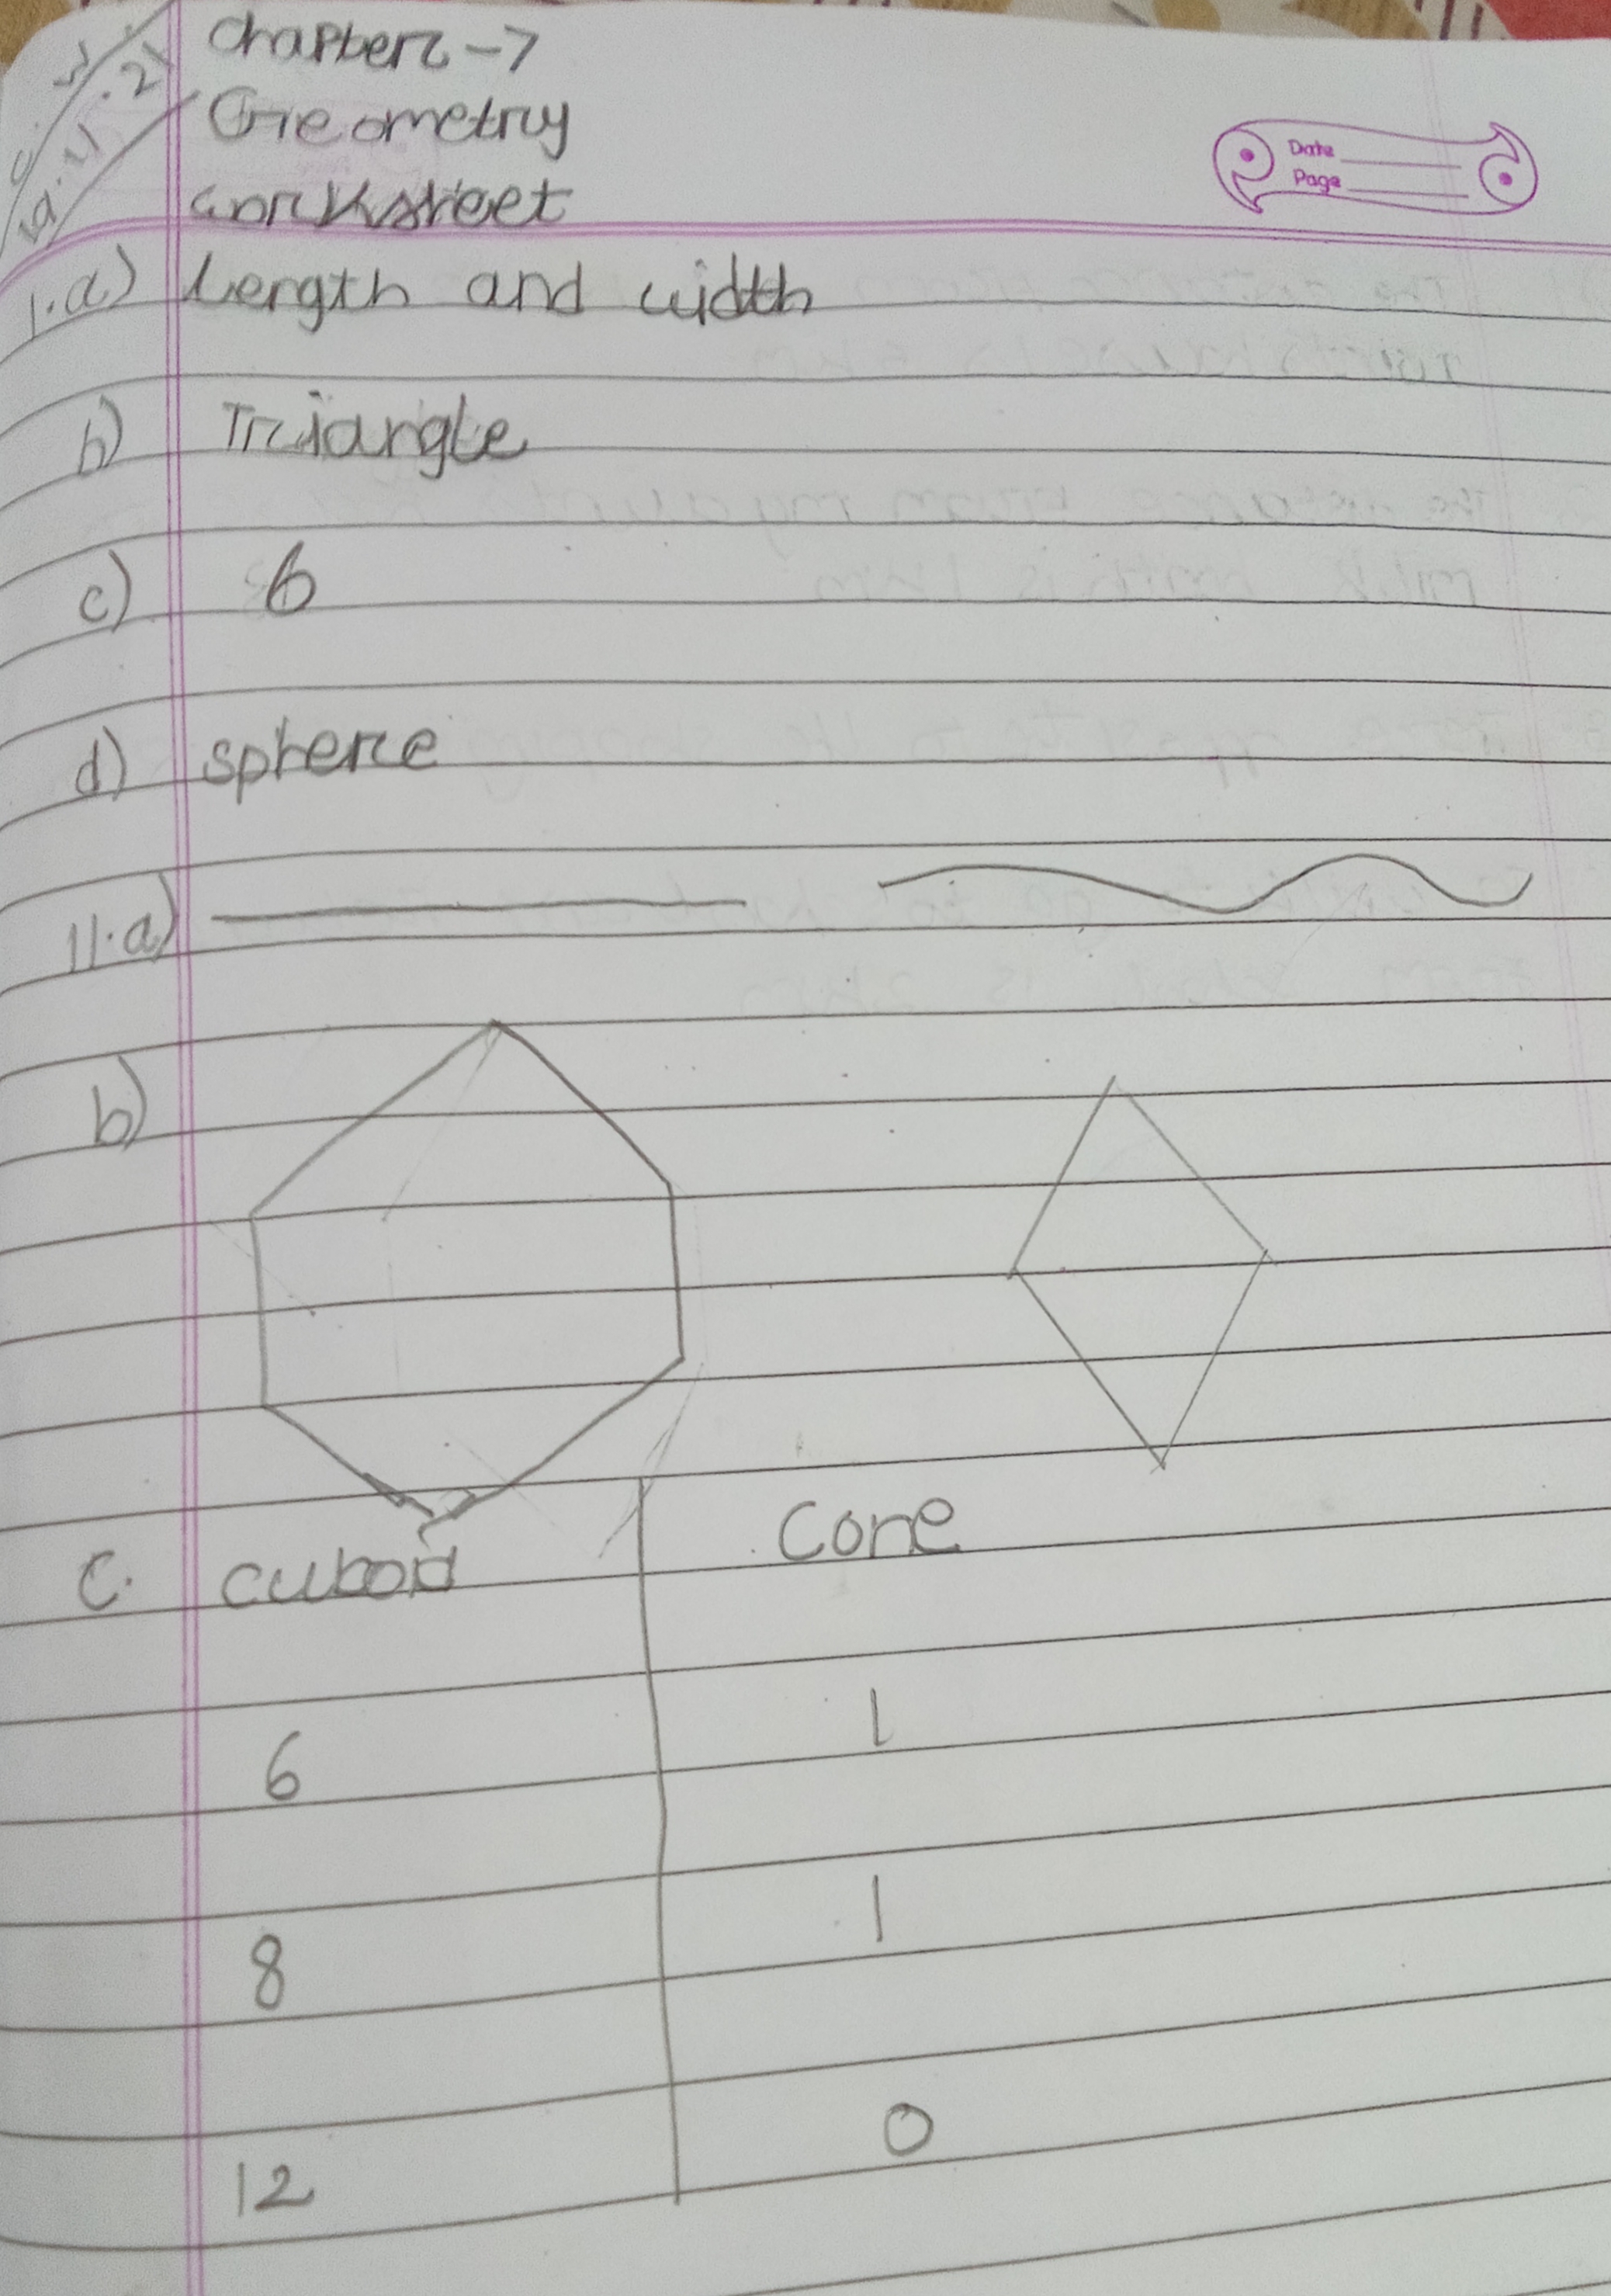 C.W.
19.11.21
Chapter-7
Geometry
worksheet
Date
Page
1.a) Length and width
b) Triangle
c) 6
d) sphere
11.a)
b)
C. cuboid Cone
6 1
8 1
12 0